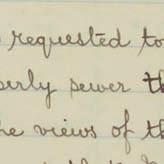 requested to
perly sewer th
he views of th